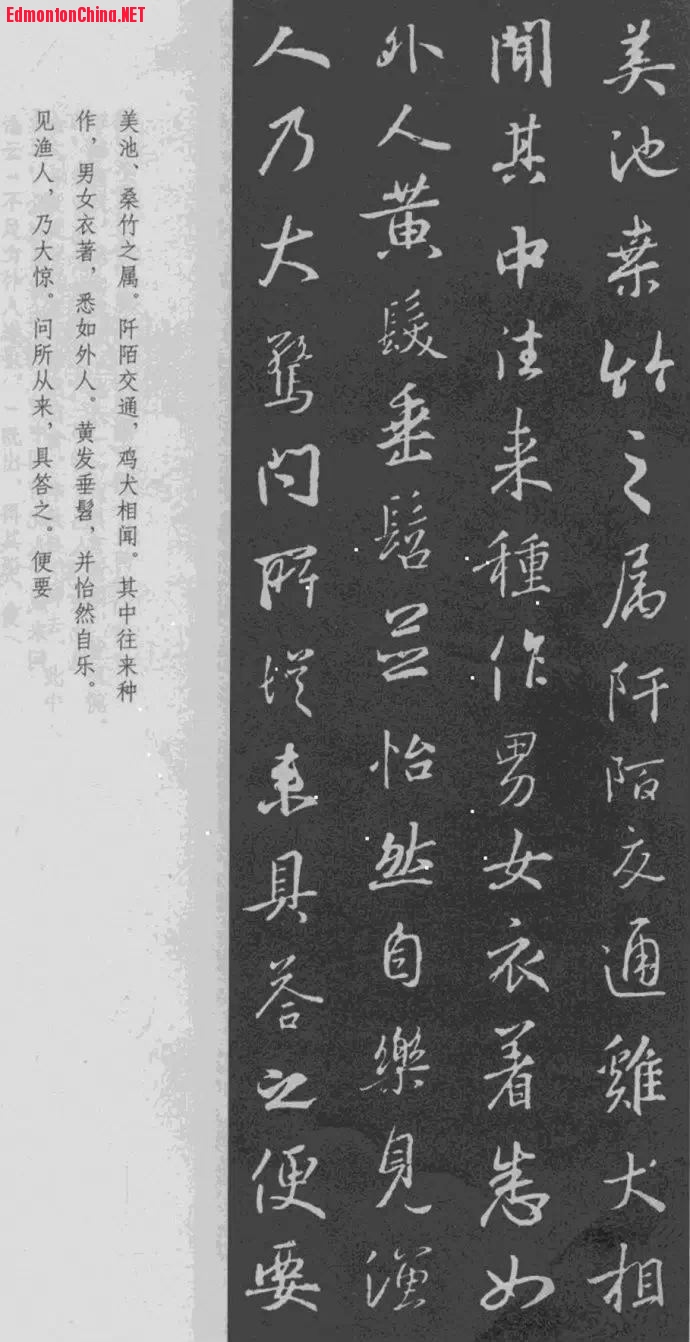 EdmontonChina.NET
美池桑竹之属阡陌交通雞犬相
聞其中往来種作男女衣着悉如
外人黄髮垂髫並怡然自樂見漁
人乃大驚问所従来具荅之便要
美池、桑竹之属。阡陌交通，鸡犬相闻。其中往来种
作，男女衣著，悉如外人。黄发垂髫，并怡然自乐。
见渔人，乃大惊。问所从来，具答之。便要